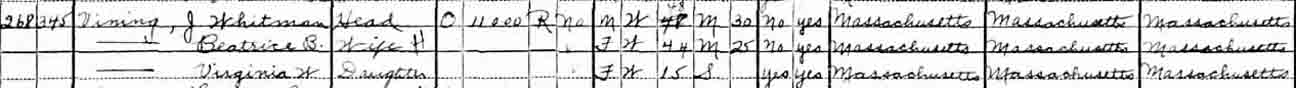 268 345 Vining, J Whitman Head O 11000 R No M W 48 M 30 No yes Massachusetts Massachusetts Massachusetts
— Beatrice B. Wife H F W 44 M 25 No yes Massachusetts Massachusetts Massachusetts
— Virginia W Daughter F W 15 S yes yes Massachusetts Massachusetts Massachusetts